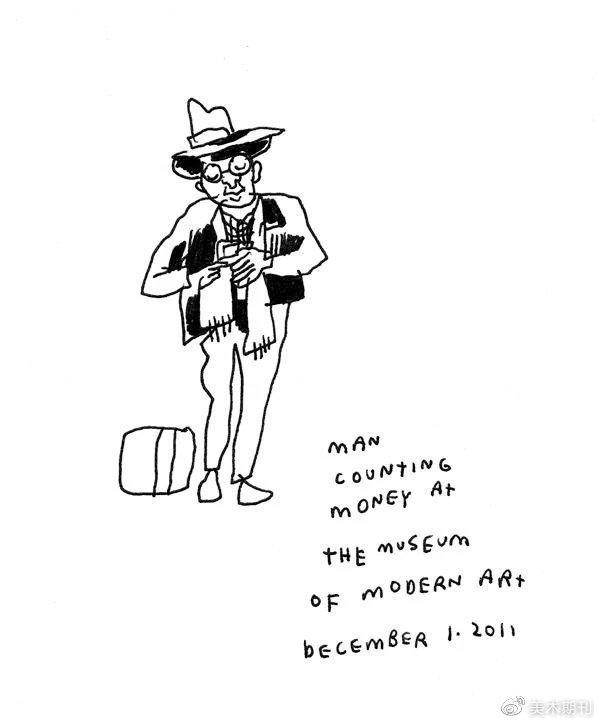 MAN
COUNTING
MONEY At
tHE MUSEUM
OF MODERN ARt
DECEMBER 1. 2011
美术期刊